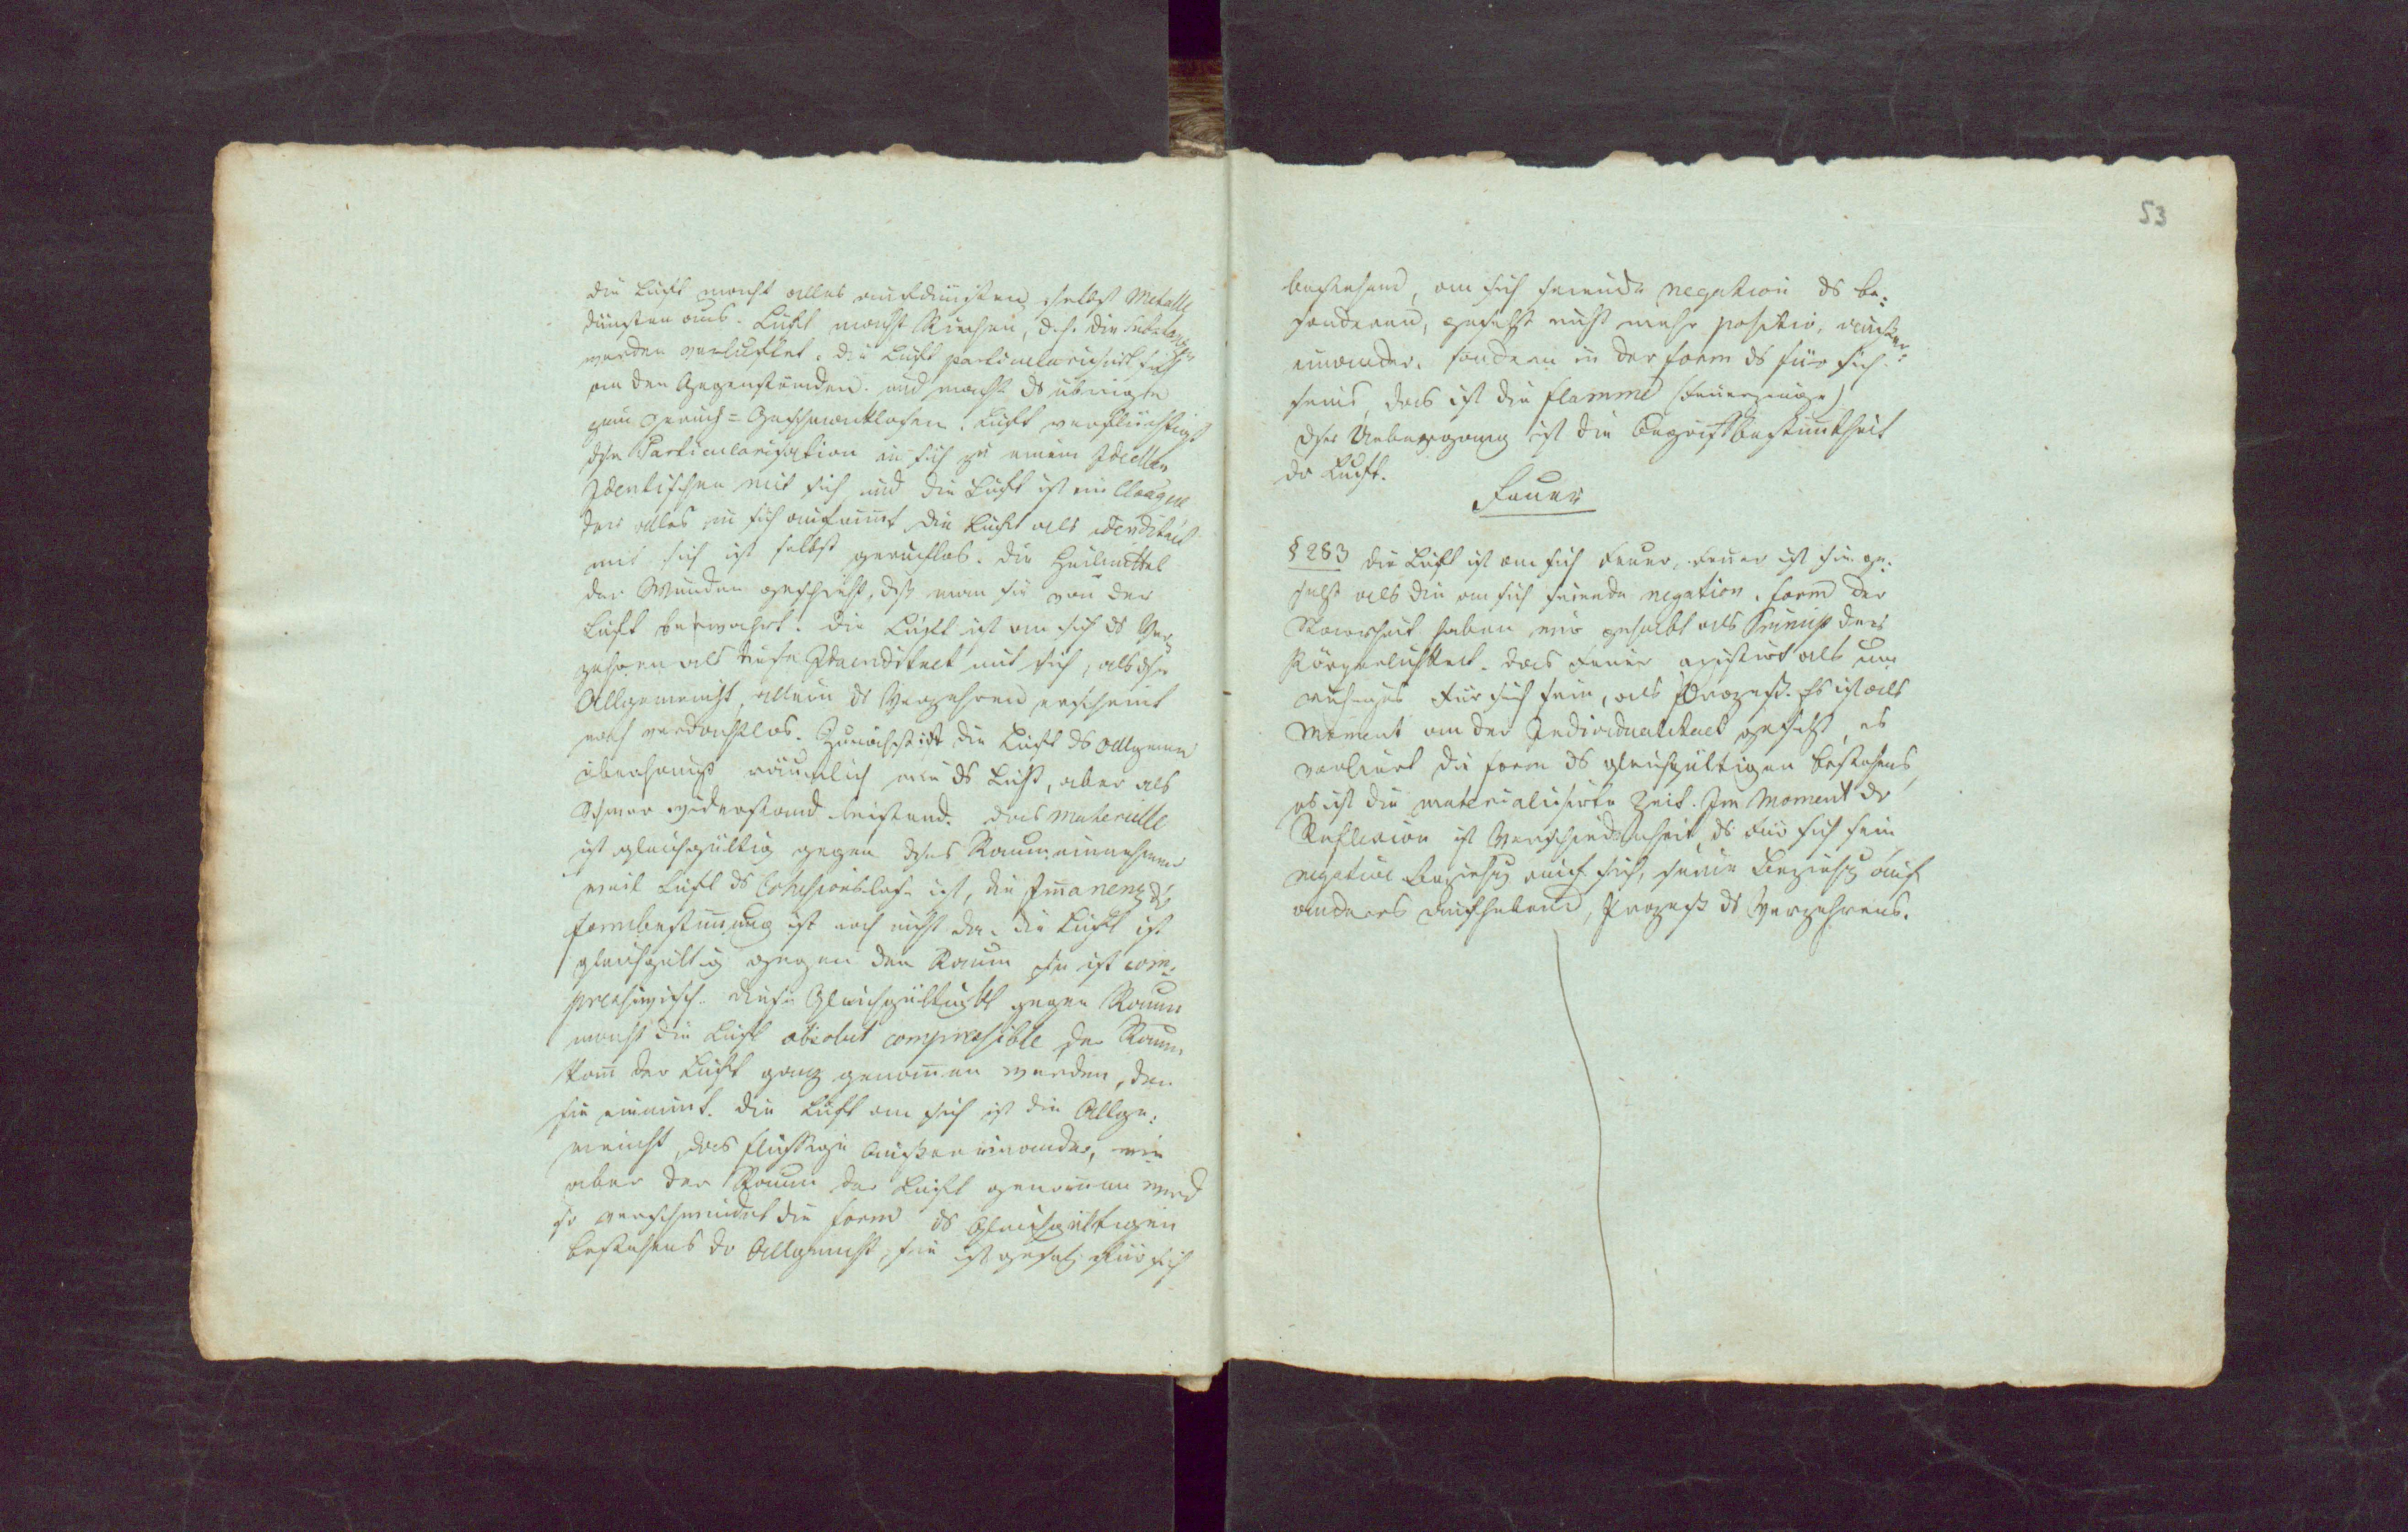 die Luft macht alles ausdünsten, selbst Metalle
dünsten aus. Luft macht Riechen, d.h. die Substanzen
werden verluftet. die Luft particularisirt sich
an den Gegenständen. und macht ds übrigte
zum Geruch= Geschmacklosen. Luft verflüchtigt
dse Particularisation in sich zu einem Ideellen
Identischen mit sich, und die Luft ist ein
das alles in sich aufnimt, die Luft als Identität
mit sich ist selbst geruchlos. die Heilmittel
der Wunden geschieht, dß man sie von der
Luft bewahrt. Die Luft ist an sich ds Ver
zehren als diese Idendität mit sich, als dse
Allgemeinht, allein ds Verzehren erscheint
noch verdachtlos. Zunächst ist die Luft ds allgemeine
überhaupt räumlich wie ds Licht, aber als
Schwer widerstand leistend. das materielle
ist gleichgültig gegen dses Raum einnehmen
weil Luft ds Cohesionslose ist, die Immanenz dr
Formbestimmung ist noch nicht da. die Luft ist
gleichgültig gegen den Raum sie ist com:
diese Gleichgültigkt gegen Raum
macht die Luft absolut compressible der Raum
kann der Luft ganz genommen werden, den
sie einnimt. die Luft an sich ist die Allge:
meinht, das flüssige Außereinander, wie
aber der Raum der Luft genommen wird
so verschwindet die Form ds Gleichgültigen
Bestehens dr Allgemeinht, sie ist gesetzt für sich
53
bestehend, an sich seiende negation ds be:
sonderen, gesetzt nicht mehr positiv, außer:
einander, sondern in der Form ds für sich
seins, das ist die Flamme (Feuerzeuge)
dser Uebergang ist die Begriffsbestimtheit
dr Luft.
Feuer
§ 283 die Luft ist an sich Feuer, Feuer ist sie ge:
setzt als die an sich seiende negation. Form der
Starrheit haben wir gehabt als Princip der
Körperlichkeit. das Feuer existirt als un
ruhiges Für sich sein, als Prozeß. Es ist als
Moment an der Individualitaet gesetzt, es
verliert die Form ds gleichgültigen Bestehens,
es ist die materialisirte Zeit. Im Moment dr
Reflexion ist Verschiedenheit, ds Für sich sein
negative Beziehg auf sich, seine Beziehg auf
anderes aufhebend, Prozeß ds Verzehrens.